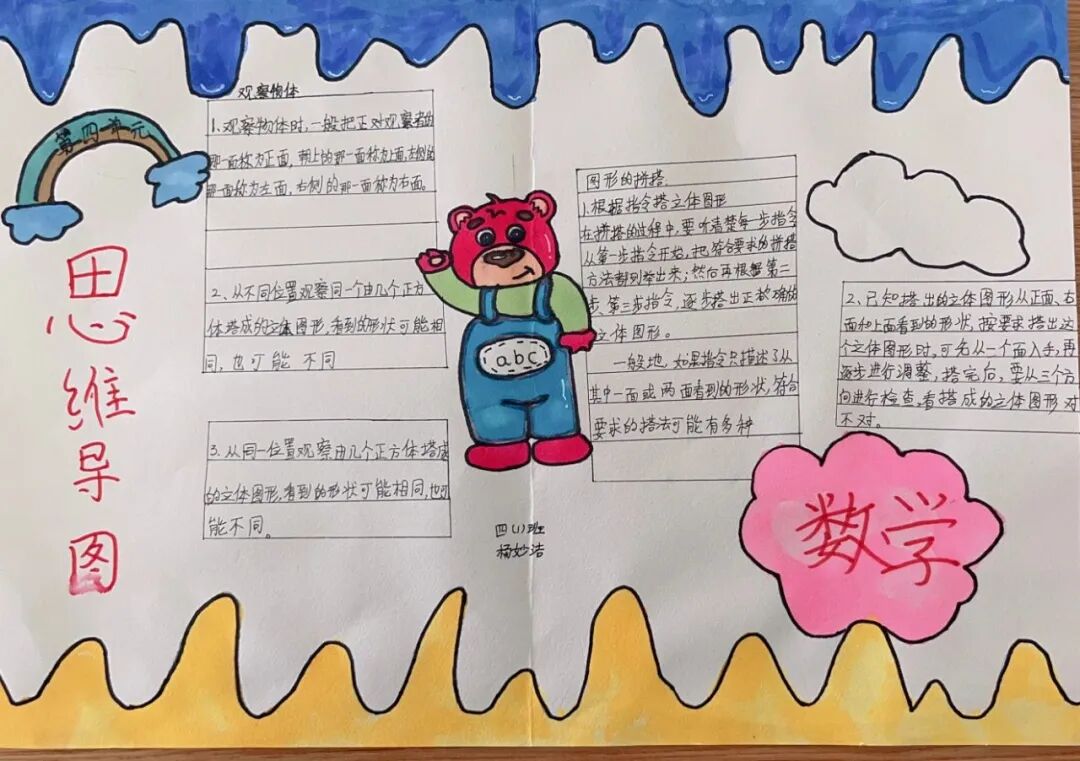 第四单元
思维导图
观察物体
1、观察物体时,一般把正对观察者的
那一面称为正面,朝上的那一面称为上面,左侧的
那一面称为左面,右侧的那一面称为右面。
2、从不同位置观察同一个由几个正方
体塔成的立体图形,看到的形状可能相
同,也可能 不同
3、从同一位置观察由几个正方体塔成
的立体图形,看到的形状可能相同,也可
能不同。
abc
四(1)班
杨妙洁
图形的拼搭
1.根据指令搭立体图形
在拼搭的过程中,要听清楚每一步指令
从第一步指令开始,把符合要求的拼搭
方法都列举出来;然后再根据第二
步、第三步指令,逐步搭出正确的
立体图形。
一般地,如果指令只描述了从
其中一面或两面看到的形状,符合
要求的搭法可能有多种
2、已知搭出的立体图形从正面、右
面和上面看到的形状,按要求搭出这
个立体图形时,可先从一个面入手,再
逐步进行调整,搭完后,要从三个方
向进行检查,看搭成的立体图形对
不对。
数学